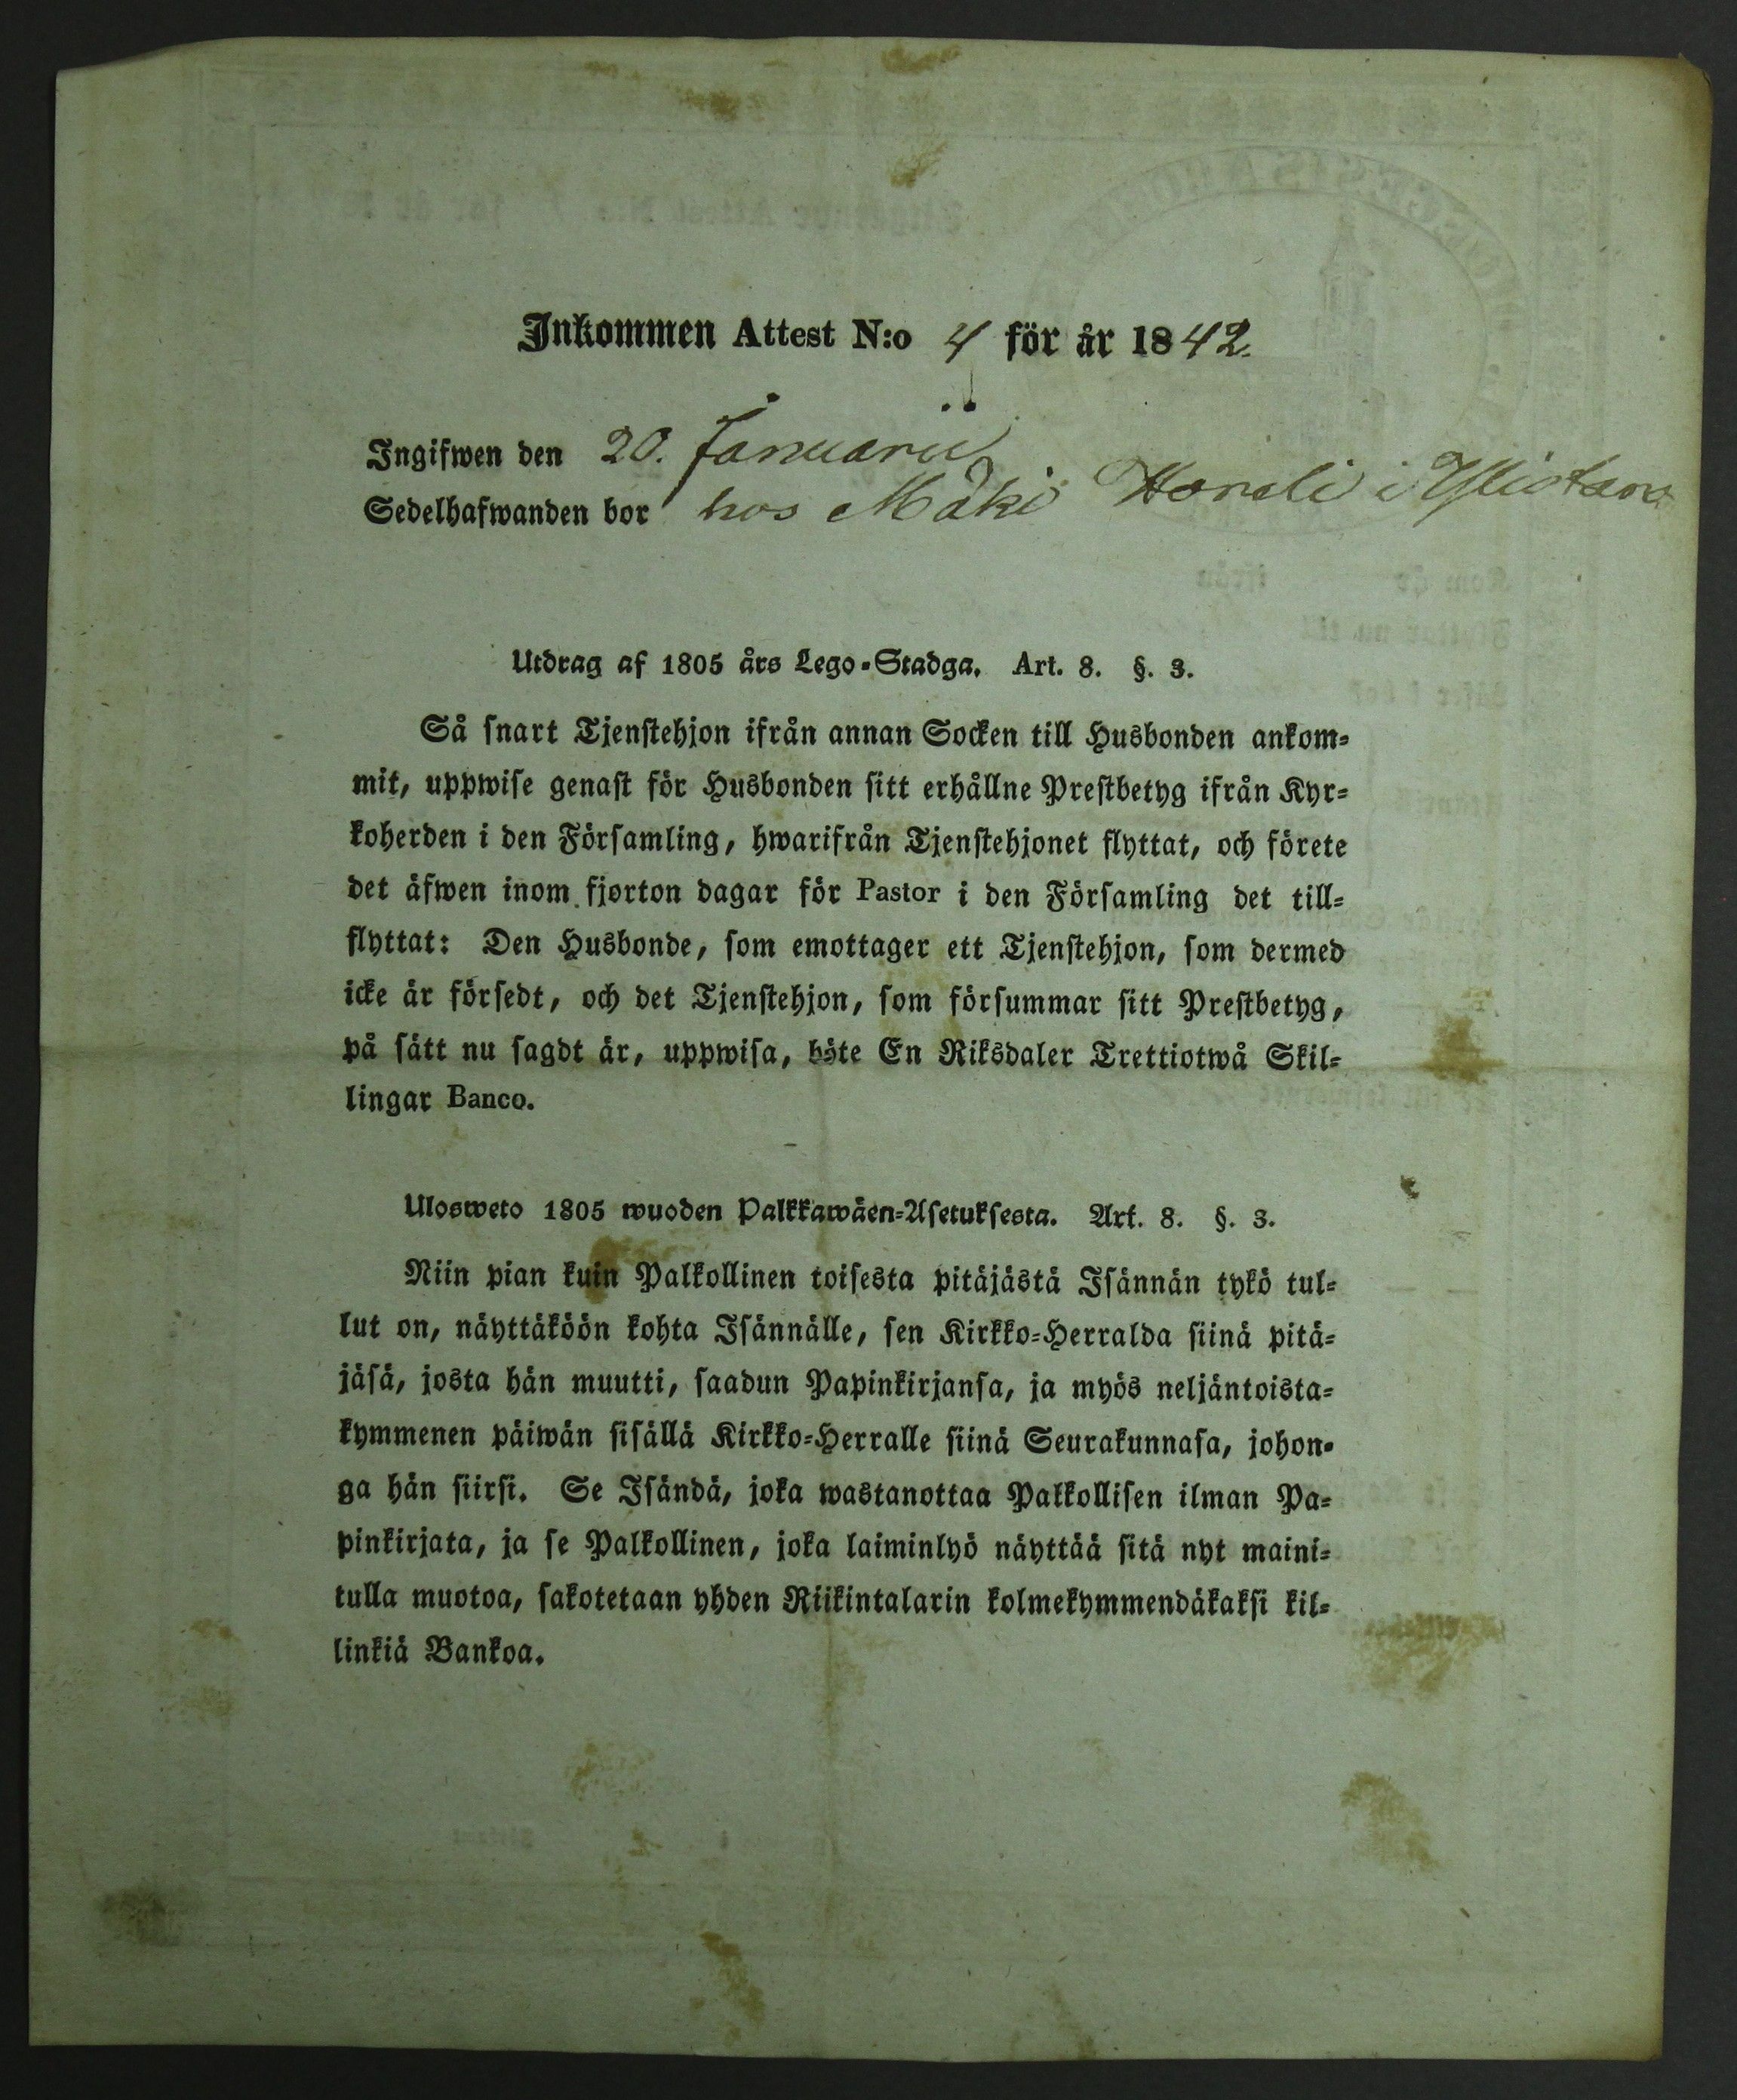 Inkommen Attest N:o 4 för år 1842.
Ingifwen den 20. Januarii
Sedelhafwanden bor hos Mäki i Ylistaro
Utdrag af 1805 års Lego-Stadga. Art. 8. §. 3.
Så snart Tjenstehjon ifrån annan Socken till Husbonden ankom-
mit, uppwise genast för Husbonden sitt erhållne Prestbetyg ifrån Kyr-
koherden i den Församling, hwarifrån Tjenstehjonet flyttat, och förete
det äfwen inom fjorton dagar för Pastor i den Församling det till-
flyttat: Den Husbonde, som emottager ett Tjenstehjon, som dermed
icke är försedt, och det Tjenstehjon, som försummar sitt Prestbetyg,
på sätt nu sagdt är, uppwisa, böte En Riksdaler Trettiotwå Skil-
lingar Banco.
Ulosweto 1805 wuoden Palkkawäen-Asetuksesta. Art. 8. §. 3.
Niin pian kuin Palkollinen toisesta pitäjästä Isännän tykö tul-
lut on, näyttäköön kohta Isännälle, sen Kirkko-Herralda siinä pitä-
jäsä, josta hän muutti, saadun Papinkirjansa, ja myös neljäntoista-
kymmenen päiwän sisällä Kirkko-Herralle siinä Seurakunnasa, johon-
ga hän siirsi. Se Isändä, joka wastanottaa Palkollisen ilman Pa-
pinkirjata, ja se Palkollinen, joka laiminlyö näyttää sitä nyt maini-
tulla muotoa, sakotetaan yhden Riikintalarin kolmekymmendäkaksi kil-
linkiä Bankoa.